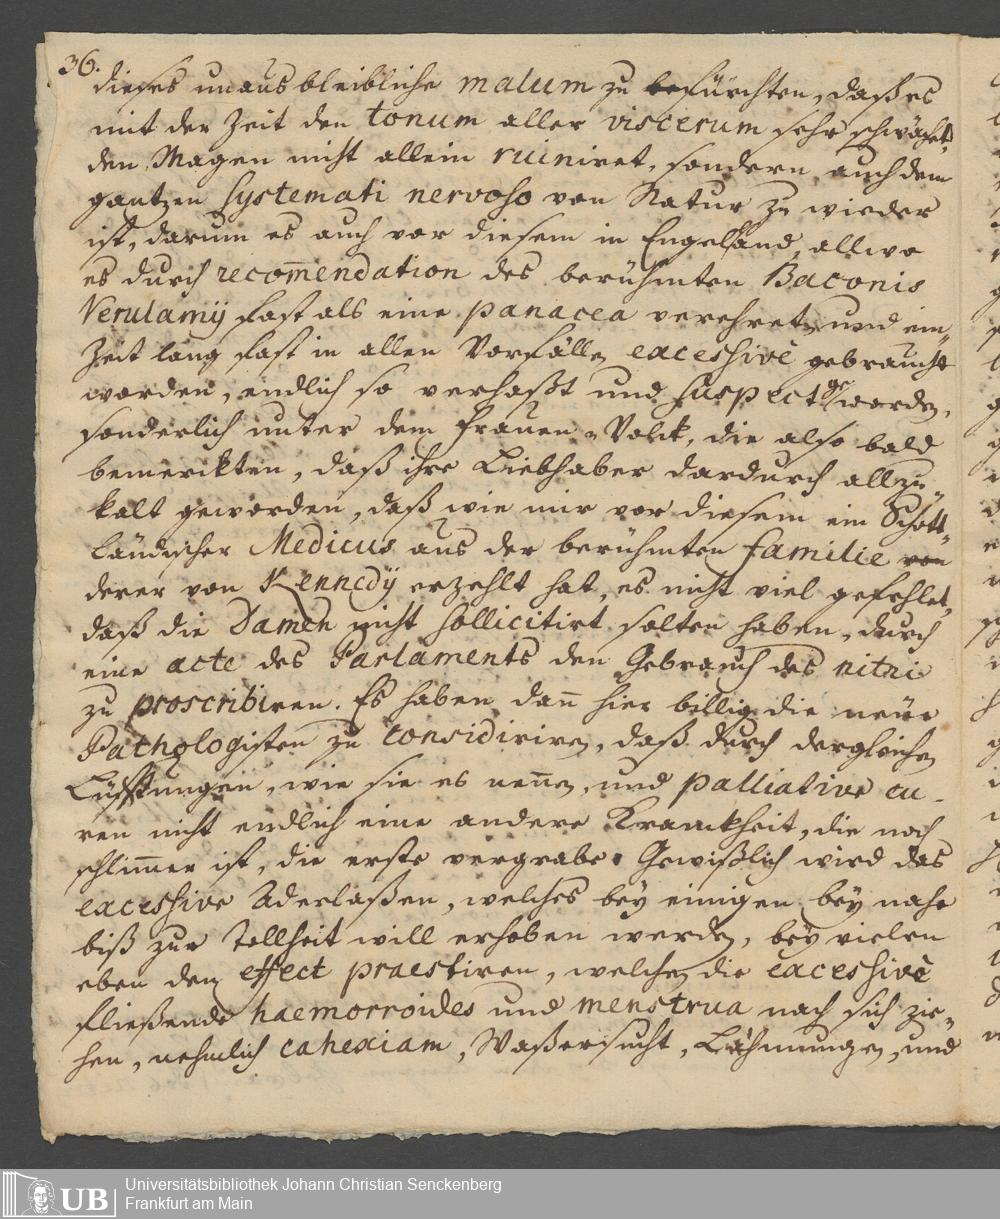 36.
dieses unausbleibliche malum zu befürchten, daß es
mit der Zeit den tonum aller viscerum sehr schwächet,
den Magen nicht allein ruiniret, sondern auch dem
gantzen systemati nervoso von Natur zu wieder
ist, darum es auch vor diesem in Engelland, allwo
es durch recom̄endation des berühmten Baconis
Verulamij fast als eine panacea verehret, und ein„
Zeit lang fast in allen Vorfällen excessivè gebraucht
worden, endlich so verhaßt und suspect geworden,
sonderlich unter dem Frauen-Volck, die also bald
bemerckten, daß ihre Liebhaber dardurch allzu
kalt geworden, daß wie mir vor diesem ein Schott„
ländischer Medicus aus der berühmten familie von
derer von Kennedÿ erzehlt hat, es nicht viel gefehlet,
daß die Damen nicht sollicitirt solten haben, durch
eine acte des Parlaments den Gebrauch des nitri
zu proscribiren. Es haben dan̄ hier billig die neüe
Pathologisten zu considiriren, daß durch dergleichen
Lüfftungen, wie sie es nen̄en, und palliative cu-
ren nicht endlich eine andere Kranckheit, die noch
schlim̄er ist, die erste vergrabe. Gewißlich wird das
excessive Aderlaßen, welches bey einigen bey nahe
biß zur Tollheit will erhoben werden, bey vielen
eben den effect praestiren, welchen die excessivè
fließende haemorroides und menstrua nach sich zie„
hen, nehmlich cahexiam, Waßersucht, Lähmungen, und
UB
Universitätsbibliothek Johann Christian Senckenberg
Frankfurt am Main